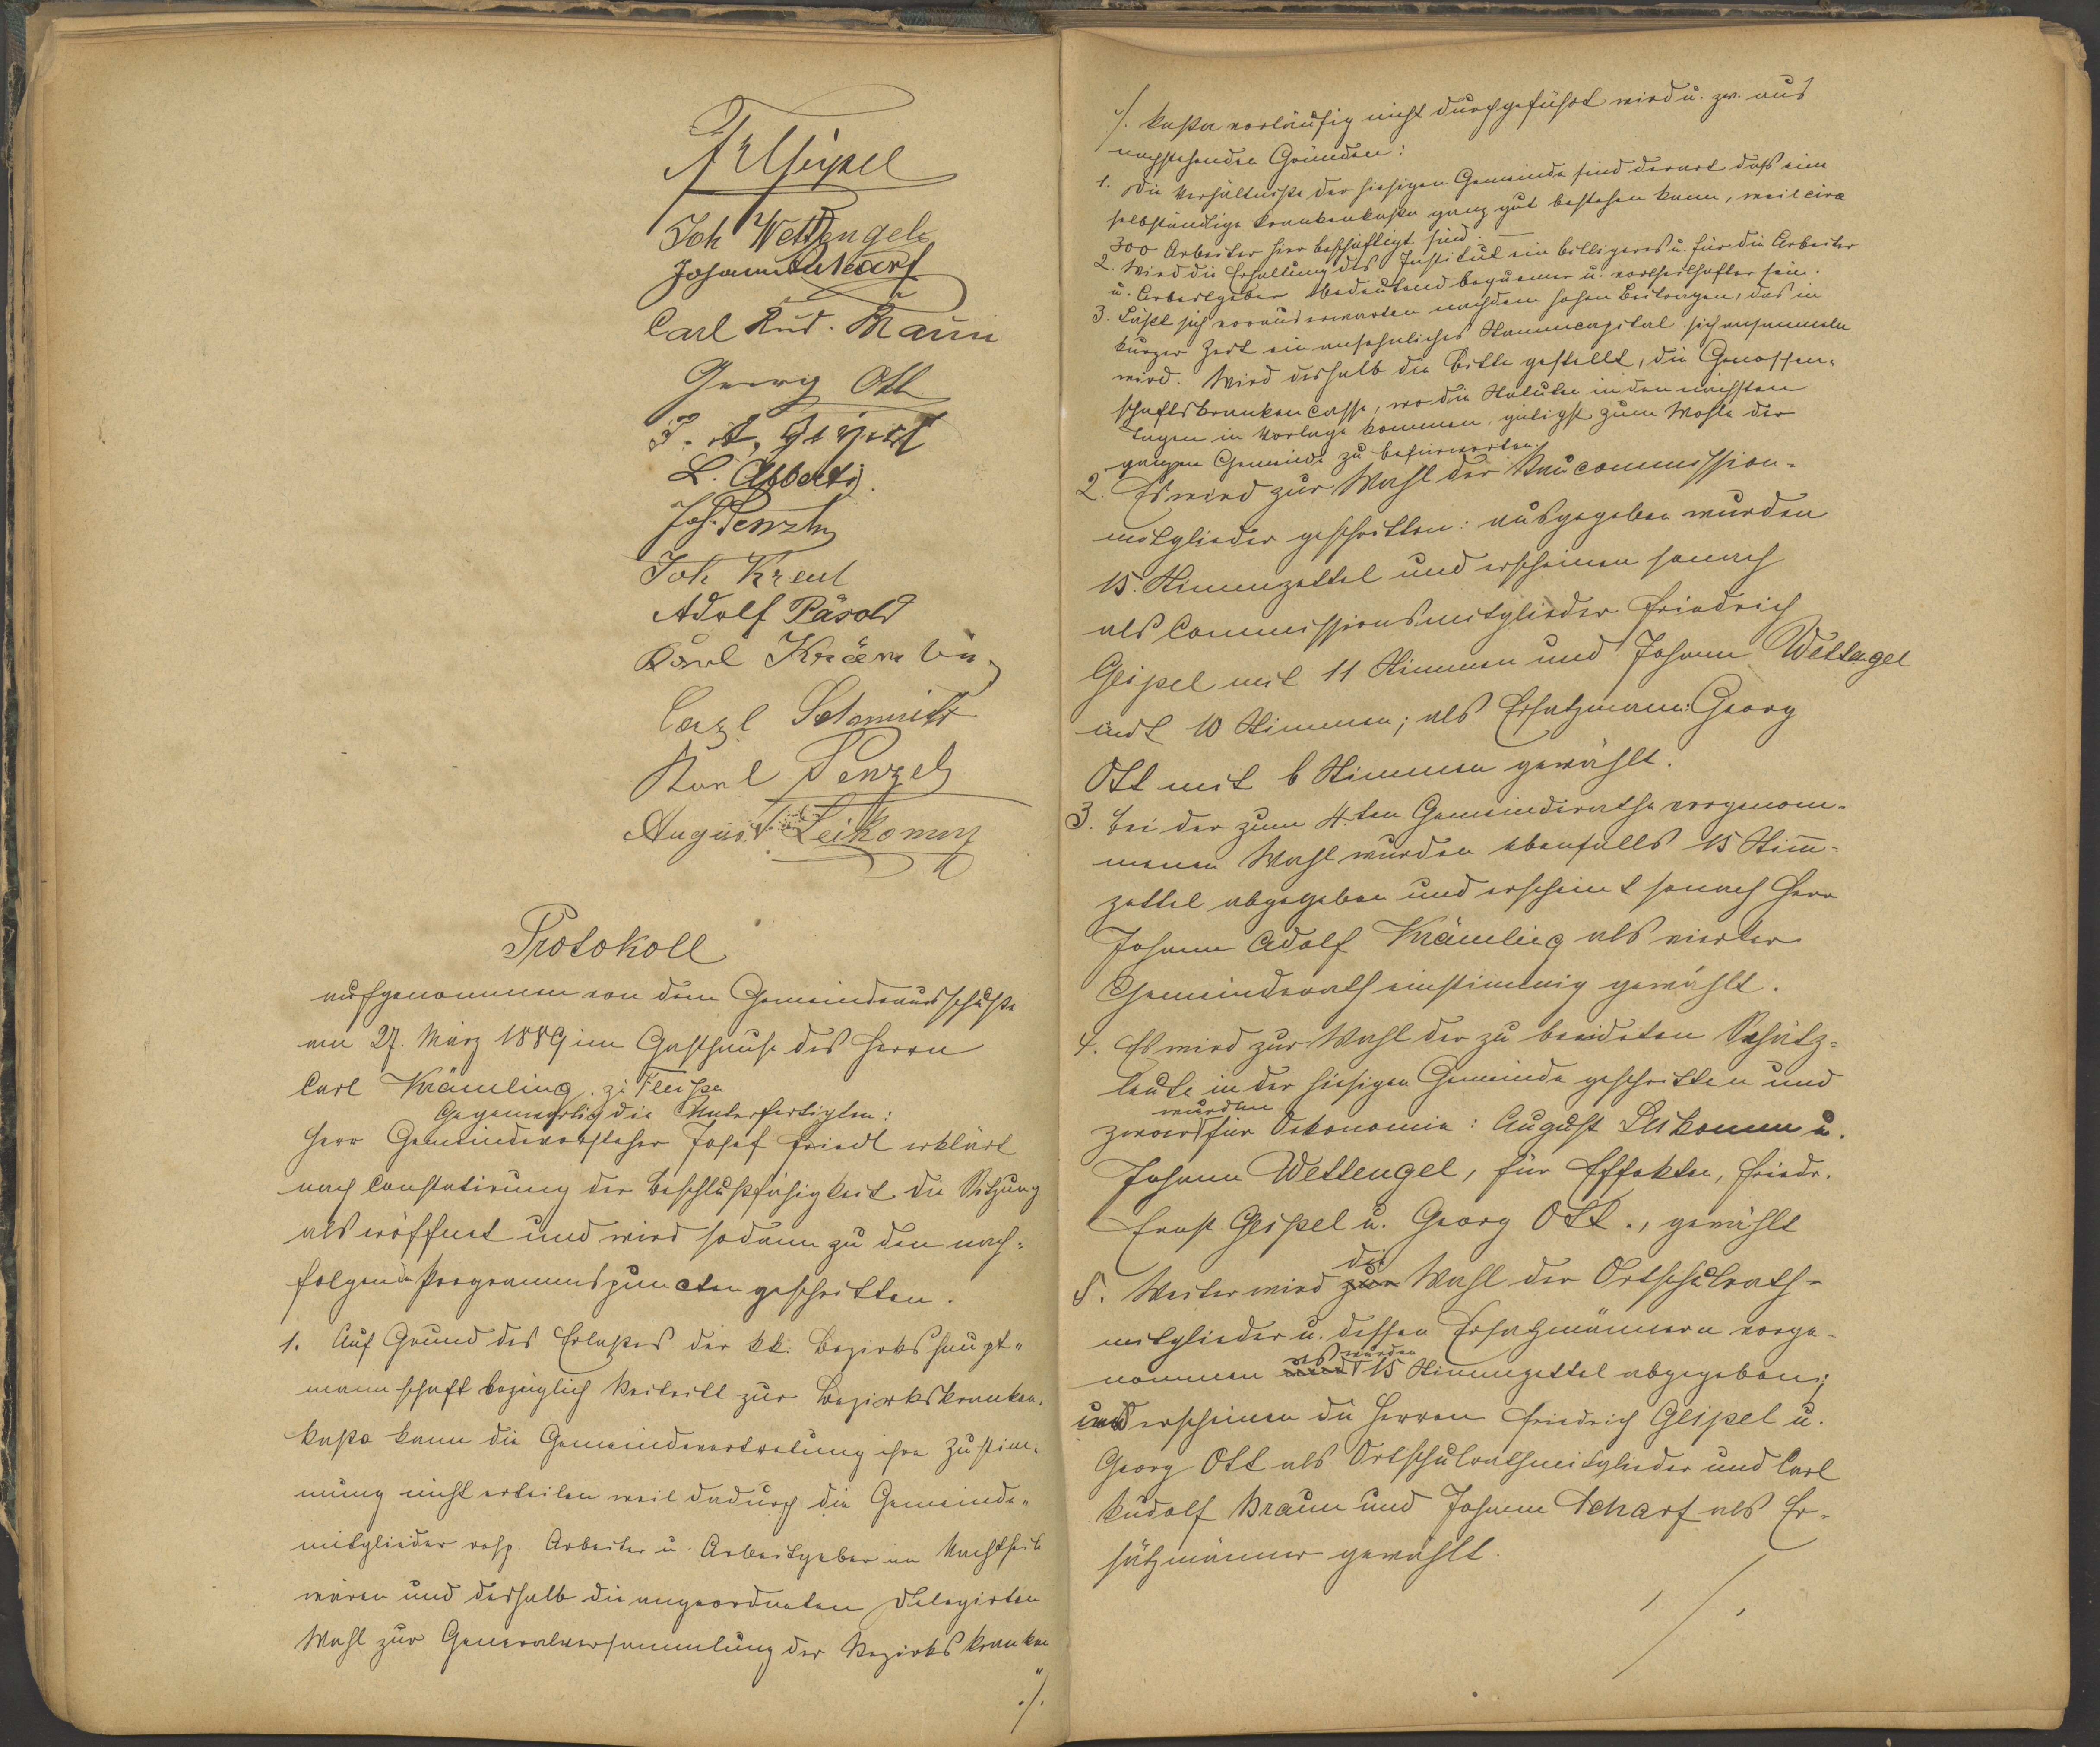 Joh Wettengel
Johann Scharf
Carl Rud. Braun
Georg Ott
L. Alberti
Joh. Penzl
Joh Kreul
Adolf Päsold
Karl Krämling
Carl Schmidt
Karl Penzel
August Leikomm
Protokoll
aufgenommen von dem Gemeindeausschuße
am 27. März 1889 im Gasthause des Herrn
Carl Krämling. zu Fleißen
Gegenwärtig die Unterfertigten:
Herr Gemeindevorsteher Josef Friedl erklärt
nach Constatirung der Beschlußfähigkeit die Sitzung
als eröffnet und wird sodann zu den nach-
folgenden Programmspuncten geschritten.
1. Auf Grund des Erlaßes der kk. Bezirkshaupt-
mannschaft bezüglich Beitritt zur Bezirkskranken-
kaße kann die Gemeindevertretung ihre Zustim-
mung nicht erteilen weil dadurch die Gemeinde-
mitglieder resp. Arbeiter u. Arbeitgeber im Nachtheile
wären und deshalb die angeordneten Delegirten
Wahl zur Generalversammlung der Bezirkskranken
./.
./. kaßa vorläufig nicht durchgeführt wird u. zw. aus
nachstehenden Gründen:
1. Die Verhältniße der hiesigen Gemeinde sind derart daß eine
selbständige Krankenkaßa ganz gut bestehen kann, weil circa
300 Arbeiter hier beschäftigt sind. —
2. Wird die Erhaltung des Institut ein billigeres u. für die Arbeiter
u. Arbeitgeber bedeutend bequemer u. vortheilhafter sein.
3. Läßt sich voraus erwarten nachdem hohen Beitragen, das in
kurzer Zeit ein ansehnliches Stammcapital sich ansammeln
wird. Wird deshalb die Bitte gestellt, die Genossen-
schaftskranken Casse, wo die Statuten in den nächsten
Tagen in Vorlage kommen, gütigst zum Wohle der
ganzen Gemeinde zu befürworten.
2. Es wird zur Wahl der Baucommission-
mitglieder geschritten: ausgegeben wurden
15. Stimmzettel und erscheinen sonach
als Commissionsmitglieder Friedrich
Geipel mit 11 Stimmen und Johann Wettengel
mit 10 Stimmen; als Ersatzmann: Georg
Ott mit 6 Stimmen gewählt.
3. Bei der zum 4.ten Gemeinderathe vorgenom-
menen Wahl wurden ebenfalls 15 Stim̄-
zettel abgegeben und erscheint sonach Herr
Johann Adolf Krämling als vierter
Gemeinderath einstimmig gewählt.
4. Es wird zur Wahl der zu beeideten Schätz-
leute in der hiesigen Gemeinde geschritten und
wurden
zwar für Oekonomie: August Leikomm u.
Johann Wettengel, für Effekten, Friedr.
Ernst Geipel u. Georg Ott., gewählt
die
5. Weiter wird zur Wahl der Ortschulrath-
mitglieder u. dessen Ersatzmännern vorge-
es wurden
nommen 15 Stimmzettel abgegeben;
und erscheinen die Herren Friedrich Geipel u.
Georg Ott als Ortschulrathmitglieder und Carl
Rudolf Braun und Johann Scharf als Er-
satzmänner gewählt.
./.